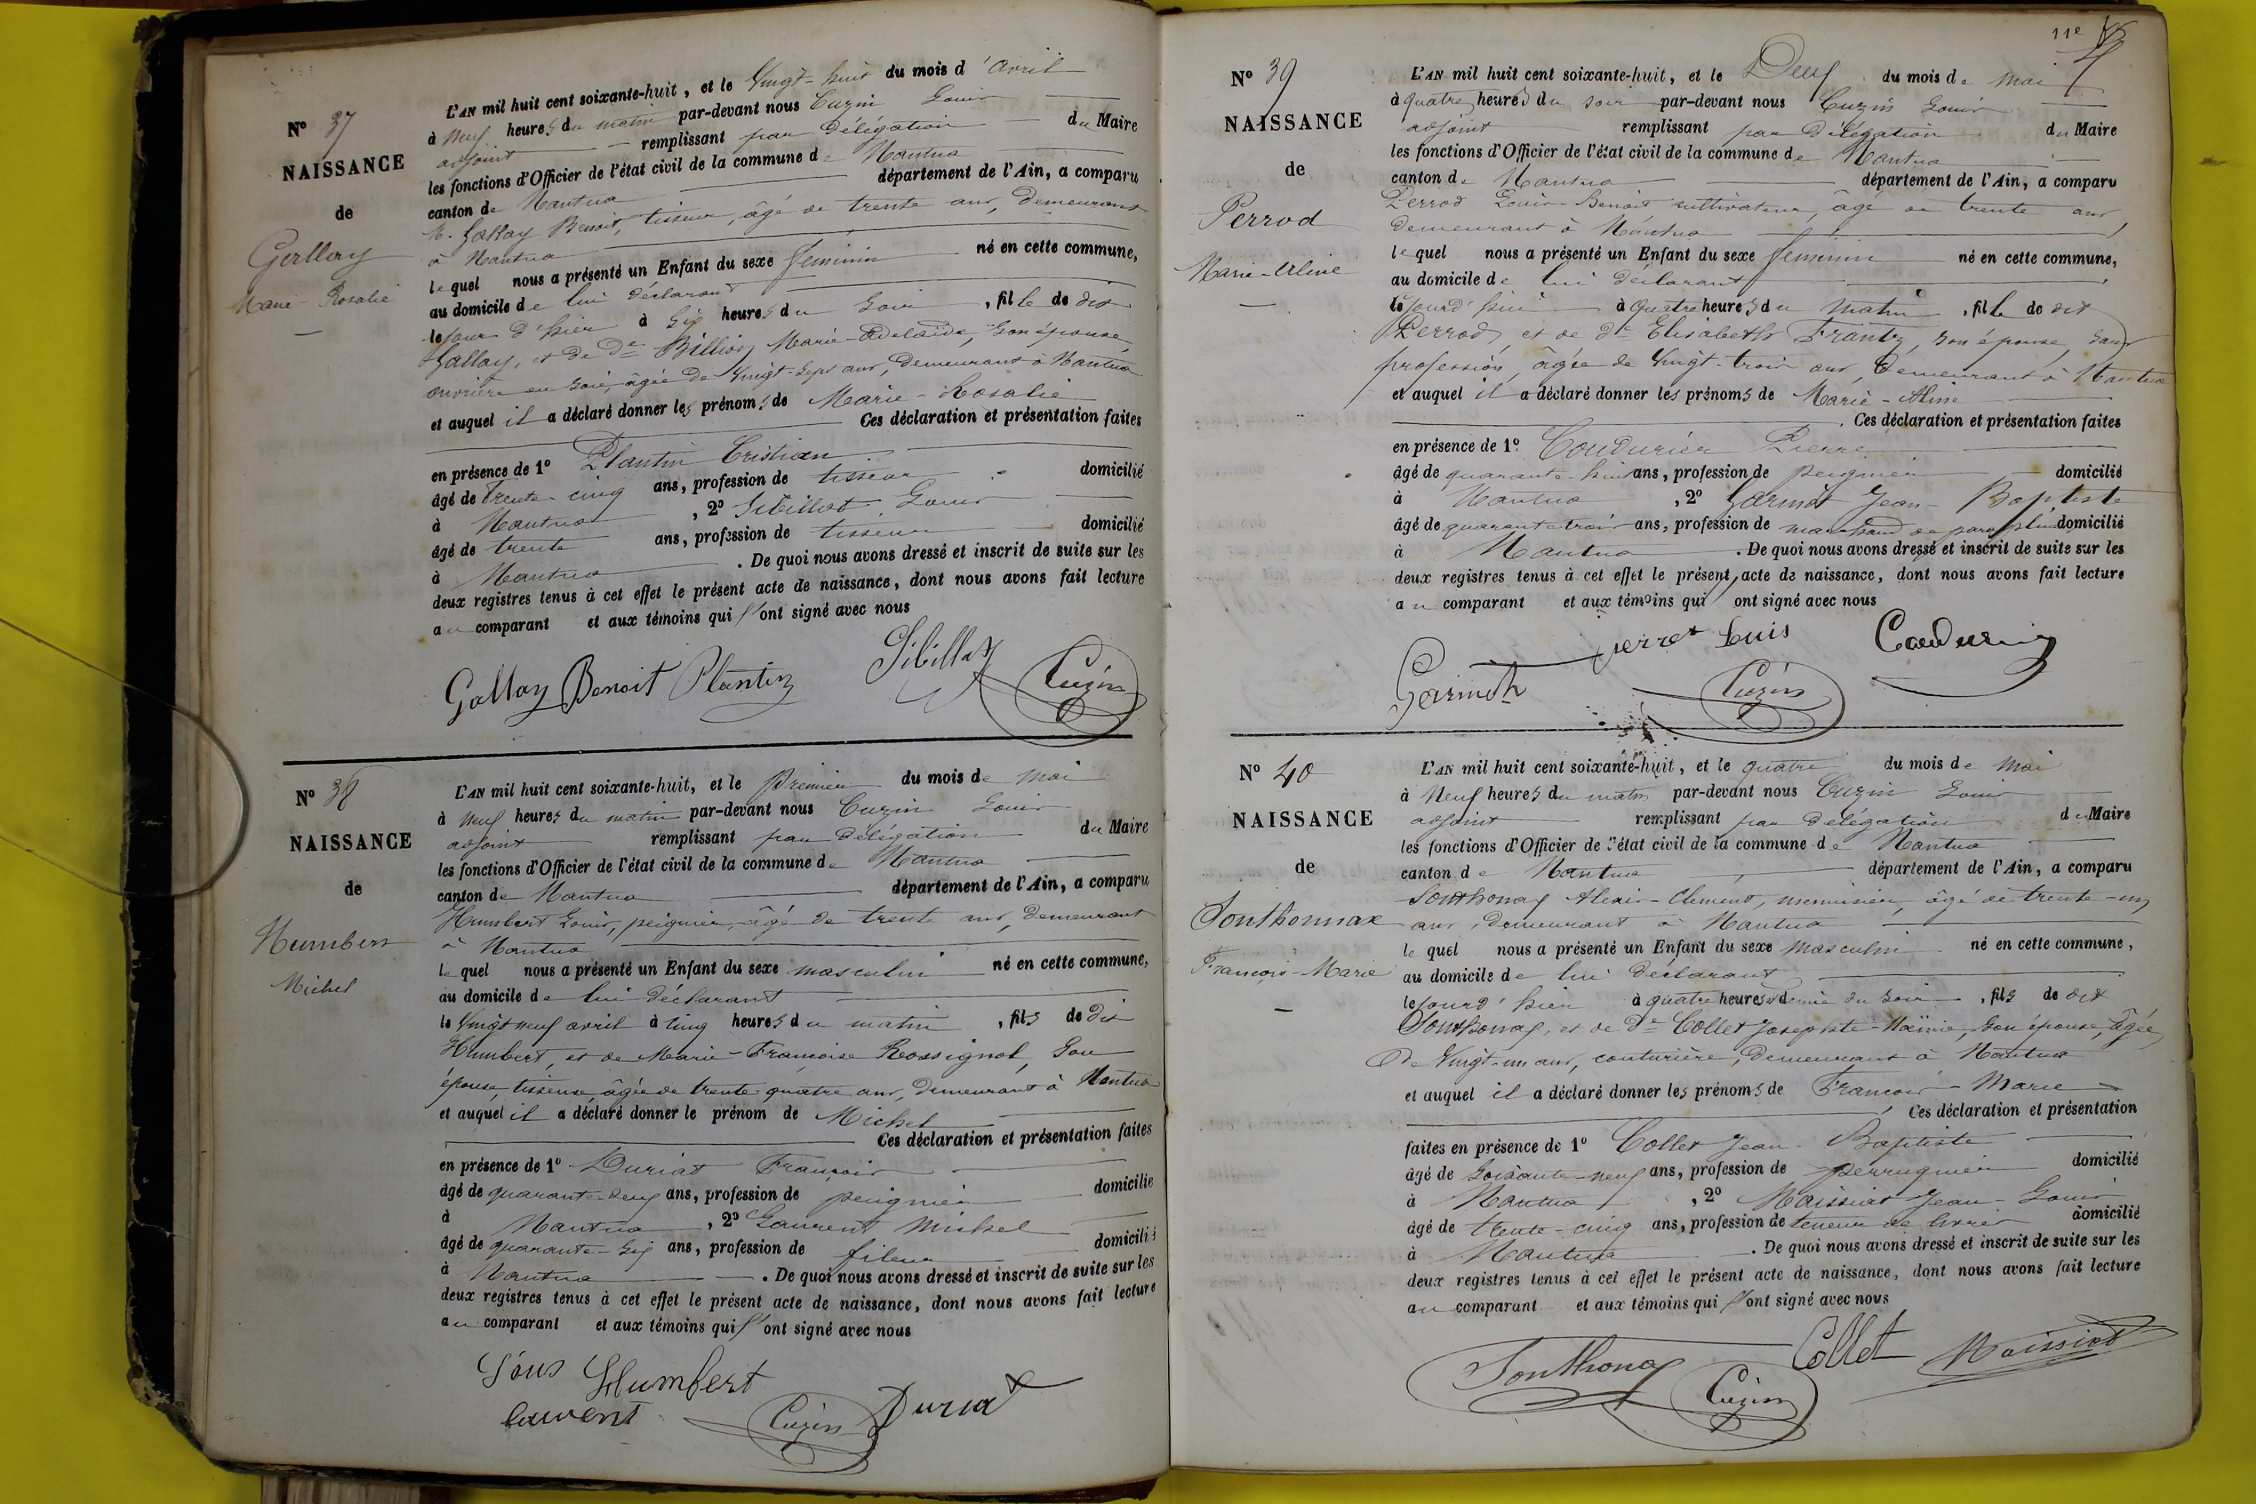 N° 37
NAISSANCE
de
Gallay
Marie-Rosalie
L'AN mil huit cent soixante-huit, et le Vingt-huit du mois d'avril
à neuf heures du matin par-devant nous Cuzin Louis
adjoint remplissant par délégation du Maire
les fonctions d'Officier de l'état civil de la commune de Nantua
canton de Nantua département de l'Ain, a comparu
M. Gallay Benoit, tisseur, âgé de trente ans, demeurant
à Nantua
lequel nous a présenté un Enfant du sexe féminin né en cette commune,
au domicile de lui déclarant
le jour d'hier à six heures du soir, fille de dit
Gallay, et de De Billion Marie-Adelaïde, son épouse,
ouvrière en soie, âgée de Vingt-sept ans, demeurant à Nantua
et auquel il a déclaré donner les prénoms de Marie-Rosalie
Ces déclaration et présentation faites
en présence de 1° Plantin Cristian
âgé de trente-cinq ans, profession de tisseur domicilié
à Nantua, 2° Sibillat Louis
âgé de trente ans, profession de tisseur domicilié
à Nantua. De quoi nous avons dressé et inscrit de suite sur les
deux registres tenus à cet effet le présent acte de naissance, dont nous avons fait lecture
au comparant et aux témoins qui l'ont signé avec nous
Gallay Benoit Plantin Sibillat Cuzin
N° 38
NAISSANCE
de
Humbert
Michel
L'AN mil huit cent soixante-huit, et le Premier du mois de mai
à neuf heures du matin par-devant nous Cuzin Louis
adjoint remplissant par délégation du Maire
les fonctions d'Officier de l'état civil de la commune de Nantua
canton de Nantua département de l'Ain, a comparu
Humbert Louis, peignier, âgé de trente ans, demeurant
à Nantua
lequel nous a présenté un Enfant du sexe masculin né en cette commune,
au domicile de lui déclarant
le Vingt neuf avril à cinq heures du matin, fils de dit
Humbert, et de Marie-Françoise Rossignol, son
épouse, tisseuse, âgée de trente-quatre ans, demeurant à Nantua
et auquel il a déclaré donner le prénom de Michel
Ces déclaration et présentation faites
en présence de 1° Duriat François
âgé de quarante-deux ans, profession de peignier domicilié
à Nantua, 2° Laurent Michel
âgé de quarante-six ans, profession de fileur domicilié
à Nantua. De quoi nous avons dressé et inscrit de suite sur les
deux registres tenus à cet effet le présent acte de naissance, dont nous avons fait lecture
au comparant et aux témoins qui l'ont signé avec nous
Humbert
Laurent Cuzin Duriat
11e
N° 39
NAISSANCE
de
Perrod
Marie-Aline
L'AN mil huit cent soixante-huit, et le Deux du mois de mai
à quatre heures du soir par-devant nous Cuzin Louis
adjoint remplissant par délégation du Maire
les fonctions d'Officier de l'état civil de la commune de Nantua
canton de Nantua département de l'Ain, a comparu
Perrod Louis-Benoit cultivateur, âgé de trente ans,
demeurant à Nantua
lequel nous a présenté un Enfant du sexe féminin né en cette commune,
au domicile de lui déclarant
le jourd'hui à quatre heures du matin, fille de dit
Perrod, et de De Elisabeth Frantz, son épouse, sans
profession, âgée de Vingt-trois ans, demeurant à Nantua
et auquel il a déclaré donner les prénoms de Marie-Aline
Ces déclaration et présentation faites
en présence de 1° Coudurier Pierre
âgé de quarante-huit ans, profession de peignier domicilié
à Nantua, 2° Garmot Jean-Baptiste
âgé de quarante-trois ans, profession de marchand de parapluie domicilié
à Nantua. De quoi nous avons dressé et inscrit de suite sur les
deux registres tenus à cet effet le présent acte de naissance, dont nous avons fait lecture
au comparant et aux témoins qui ont signé avec nous
Luis
Cuzin
N° 40
NAISSANCE
de
Sonthonnax
François-Marie
L'AN mil huit cent soixante-huit, et le quatre du mois de mai
à Neuf heures du matin par-devant nous Cuzin Louis
adjoint remplissant par délégation du Maire
les fonctions d'Officier de l'état civil de la commune de Nantua
canton de Nantua département de l'Ain, a comparu
Sonthonax Alexis-Clément, menuisier, âgé de trente-un
ans, demeurant à Nantua
lequel nous a présenté un Enfant du sexe masculin né en cette commune,
au domicile de lui déclarant
le jour d'hier à quatre heures et demie du soir, fils de dit
Sonthonax, et de De Collet Josephte-Marie, son épouse, âgée
de Vingt-un ans, couturière, demeurant à Nantua
et auquel il a déclaré donner les prénoms de François-Marie
Ces déclaration et présentation
faites en présence de 1° Collet Jean-Baptiste
âgé de soixante-neuf ans, profession de perruquier domicilié
à Nantua, 2° Moissiat Jean-Louis
âgé de trente-cinq ans, profession de teneur de livres domicilié
à Nantua. De quoi nous avons dressé et inscrit de suite sur les
deux registres tenus à cet effet le présent acte de naissance, dont nous avons fait lecture
au comparant et aux témoins qui l'ont signé avec nous
Sonthonax Cuzin Collet Moissiat